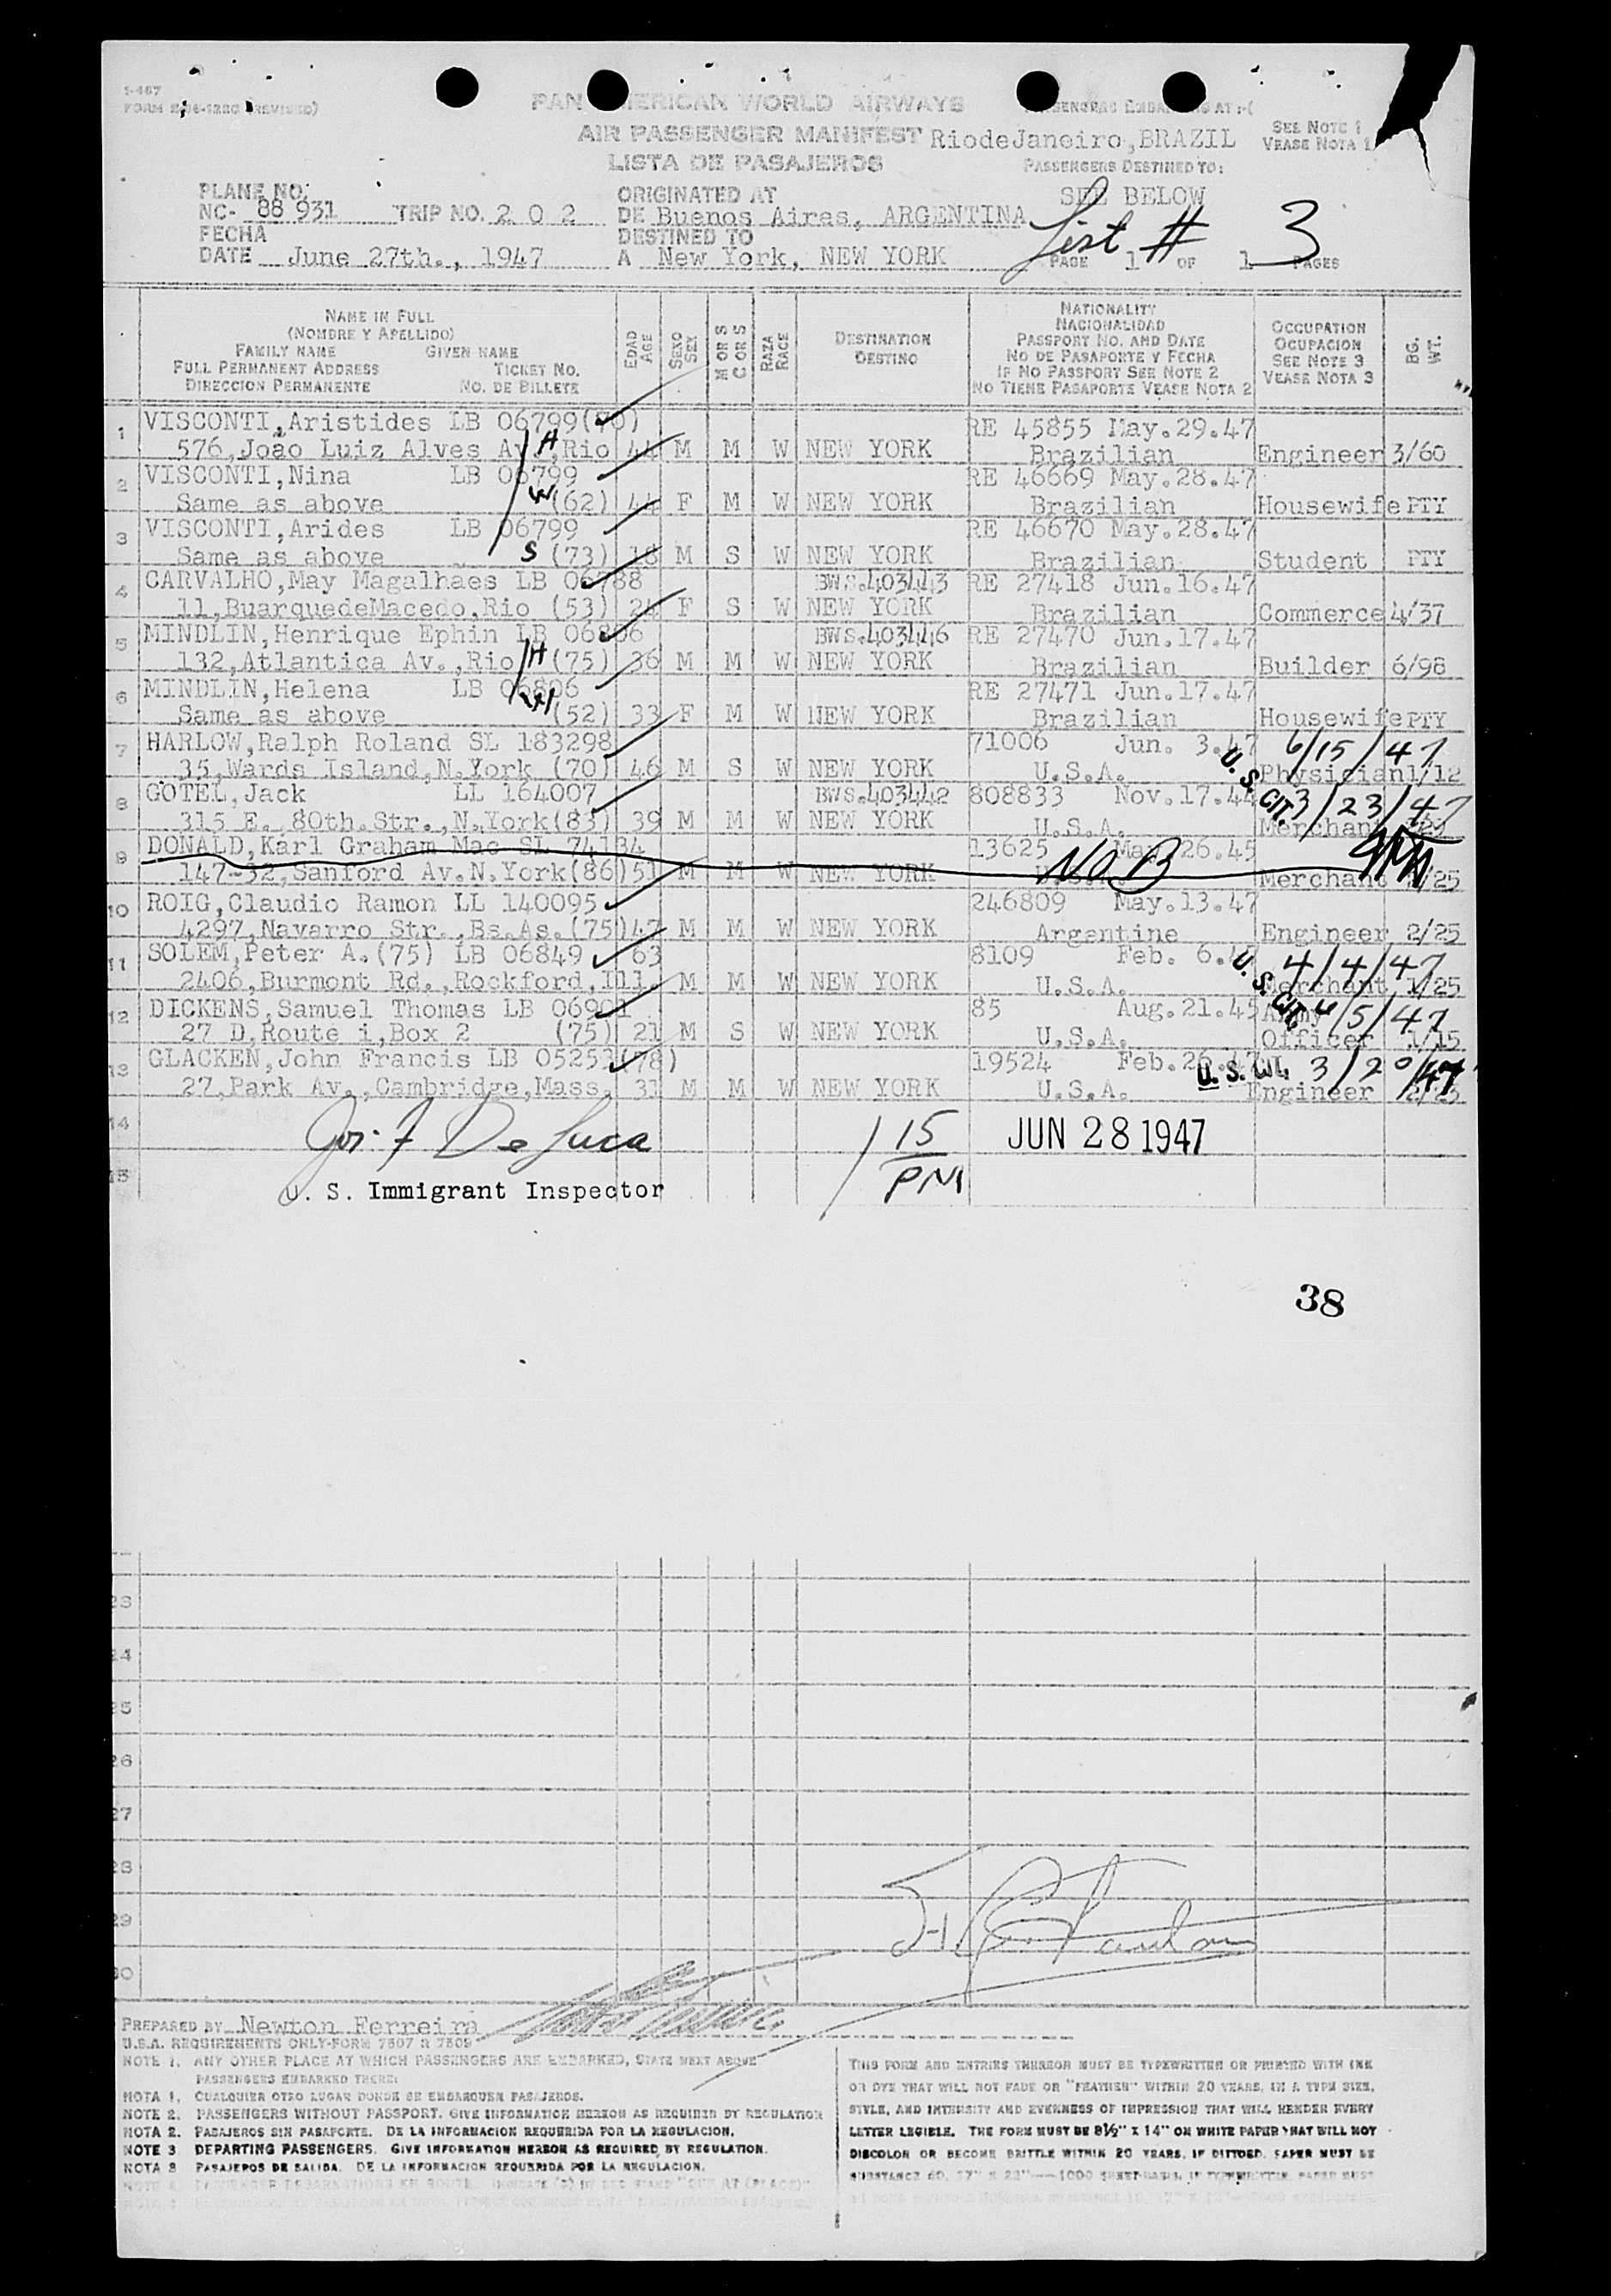 1-467
PAN AMERICAN WORLD AIRWAYS
AIR PASSENGER MANIFEST RiodeJaneiro,BRAZIL
SEE NOTE 1
VEASE NOTA 1
LISTA DE PASAJEROS
PASSENGERS DESTINED TO:
SEE BELOW
PLANE NO.
NC- 88 931 TRIP NO. 2 0 2
ORIGINATED AT
DE Buenos Airas, ARGENTINA
List # 3
FECHA
DATE June 27th., 1947
DESTINED TO
A New York, NEW YORK
PAGE 1 OF 1 PAGES
NAME IN FULL
(NOMBRE Y APELLIDO)
FAMILY NAME GIVEN NAME
FULL PERMANENT ADDRESS TICKET NO.
DIRECCION PERMANENTE NO. DE BILLETE
EDAD
AGE
SEXO
SEX
M OR S
C OR S
RAZA
RACE
DESTINATION
DESTINO
NATIONALITY
NACIONALIDAD
PASSPORT NO. AND DATE
NO DE PASAPORTE Y FECHA
IF NO PASSPORT SEE NOTE 2
NO TIENE PASAPORTE VEASE NOTA 2
OCCUPATION
OCUPACION
SEE NOTE 3
VEASE NOTA 3
BG.
WT.
1 VISCONTI,Aristides LB 06799(70) RE 45855 May.29.47
576,João Luiz Alves Av.,Rio H 44 M M W NEW YORK Brazilian Engineer 3/60
2 VISCONTI,Nina LB 06799 RE 46669 May.28.47
Same as above W (62) 44 F M W NEW YORK Brazilian Housewife PTY
3 VISCONTI,Arides LB 06799 RE 46670 May.28.47
Same as above S (73) 18 M S W NEW YORK Brazilian Student PTY
4 CARVALHO,May Magalhaes LB 06788 BWS.403443 RE 27418 Jun.16.47
11,BuarquedeMacedo,Rio (53) 24 F S W NEW YORK Brazilian Commerce 4/37
5 MINDLIN,Henrique Ephin LB 06806 BWS.403446 RE 27470 Jun.17.47
132,Atlantica Av.,Rio H (75) 36 M M W NEW YORK Brazilian Builder 6/98
6 MINDLIN,Helena LB 06806 RE 27471 Jun.17.47
Same as above (52) 33 F M W NEW YORK Brazilian Housewife PTY
7 HARLOW,Ralph Roland SL 183298 71006 Jun. 3.47 6/15/47
35,Wards Island,N.York (70) 46 M S W NEW YORK U.S.A. U.S. CIT. Physician 1/12
8 GOTEL,Jack LL 164007 BWS.403442 808833 Nov.17.44 3/23/47
315 E.,80th.Str.,N.York(83) 39 M M W NEW YORK U.S.A. Merchant
9 DONALD,Karl Graham Mac SL 74184 13625 Mar.26.45
147-32,Sanford Av.N.York(86)51 M M W NEW YORK NOB Merchant 2/25
10 ROIG,Claudio Ramon LL 140095 246809 May.13.47
4297,Navarro Str.,Bs.As.(75)47 M M W NEW YORK Argentine Engineer 2/25
11 SOLEM,Peter A.(75) LB 06849 63 8109 Feb. 6.47 4/4/47
2406,Burmont Rd.,Rockford,Ill. M M W NEW YORK U.S.A. U.S. CIT. Merchant 1/25
12 DICKENS,Samuel Thomas LB 06901 85 Aug.21.45 Army 4/5/47
27 D,Route i,Box 2 (75) 21 M S W NEW YORK U.S.A. Officer 1/15
13 GLACKEN,John Francis LB 05253(78) 19524 Feb.26.47 U.S. Cit. 3/20/47
27,Park Av.,Cambridge,Mass. 31 M M W NEW YORK U.S.A. Engineer 2/25
14 Jos. F De Luca 1 15 PM JUN 28 1947
15 U. S. Immigrant Inspector
38
23
24
25
26
27
28
29
30
PREPARED BY Newton Ferreira
U.S.A. REQUIREMENTS ONLY-FORM 7507 R 7509
NOTE 1. ANY OTHER PLACE AT WHICH PASSENGERS ARE EMBARKED, STATE NEXT ABOVE
PASSENGERS EMBARKED THERE:
NOTA 1. CUALQUIER OTRO LUGAR DONDE SE EMBARQUEN PASAJEROS.
NOTE 2. PASSENGERS WITHOUT PASSPORT. GIVE INFORMATION HEREON AS REQUIRED BY REGULATION
NOTA 2. PASAJEROS SIN PASAPORTE. DE LA INFORMACION REQUERIDA POR LA REGULACION.
NOTE 3 DEPARTING PASSENGERS. GIVE INFORMATION HEREON AS REQUIRED BY REGULATION.
NOTA 3 PASAJEROS DE SALIDA. DE LA INFORMACION REQUERIDA POR LA REGULACION.
THIS FORM AND ENTRIES THEREON MUST BE TYPEWRITTEN OR PRINTED WITH INK
OR DYE THAT WILL NOT FADE OR "FEATHER" WITHIN 20 YEARS, IN A TYPE SIZE,
STYLE, AND INTENSITY AND EVENNESS OF IMPRESSION THAT WILL RENDER EVERY
LETTER LEGIBLE. THE FORM MUST BE 8½" X 14" ON WHITE PAPER THAT WILL NOT
DISCOLOR OR BECOME BRITTLE WITHIN 20 YEARS. IF DITTOED, PAPER MUST BE